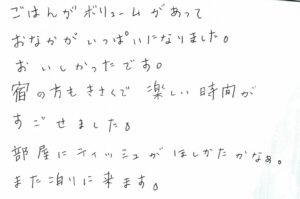 ごはんがボリュームがあって
おなかがいっぱいになりました。
おいしかったです。
宿の方もきさくで楽しい時間が
すごせました。
部屋にティッシュがほしかたかなぁ。
また泊りに来ます。